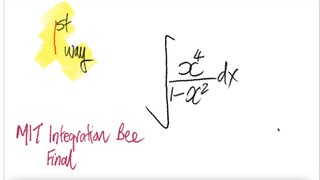 1st
way
∫ x⁴/(1-x²) dx
MIT Integration Bee
Final